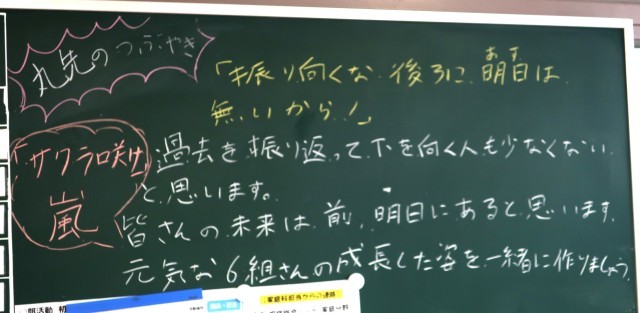 丸先のつぶやき
「振り向くな 後ろに 明日は
あす
無いから!」
「サクラ咲ケ」
嵐
過去を振り返って下を向く人も少なくない
と思います。
皆さんの未来は、前、明日にあると思います。
元気な6組さんの成長した姿を一緒に作りましょう。
家庭科担当からの連絡